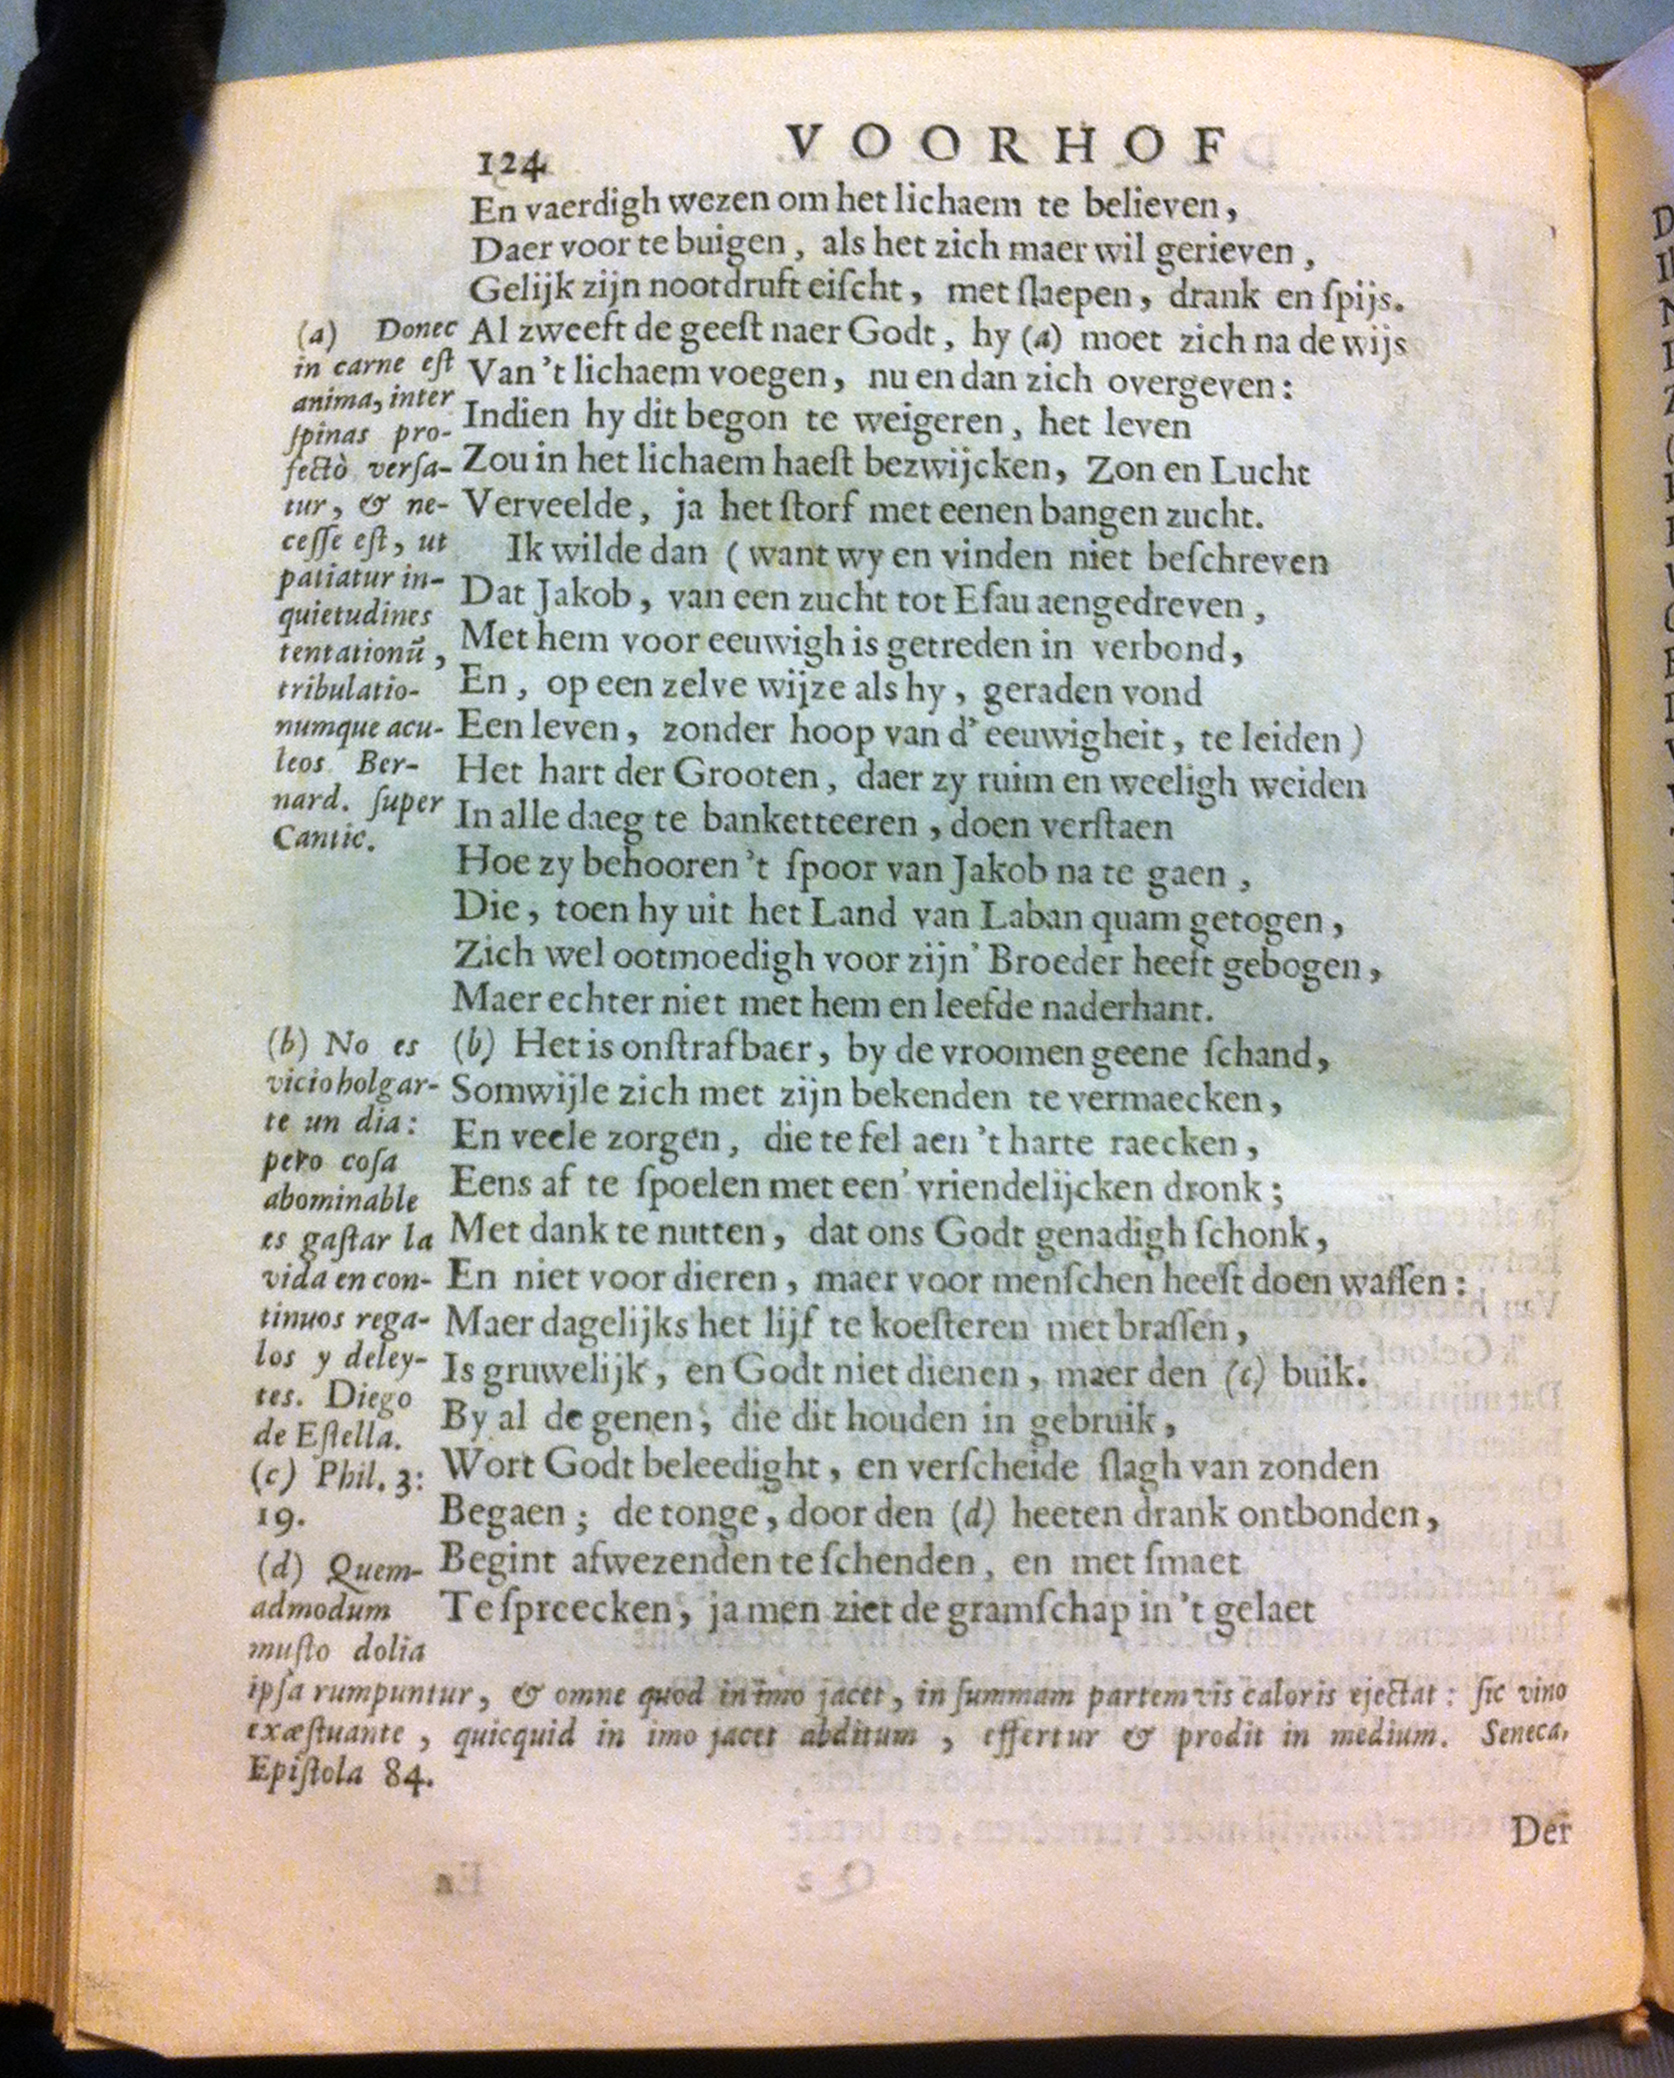 124 VOORHOF
En vaerdigh wezen om het lichaem te believen,
Daer voor te buigen, als het zich maer wil gerieven,
Gelijk zijn nootdruft eiſcht, met ſlaepen, drank en ſpijs.
Al zweeft de geeſt naer Godt, hy (a) moet zich na de wijs
Van 't lichaem voegen, nu en dan zich overgeven:
Indien hy dit begon te weigeren, het leven
Zou in het lichaem haeſt bezwijcken, Zon en Lucht
Verveelde, ja het ſtorf met eenen bangen zucht.
Ik wilde dan (want wy en vinden niet beſchreven
Dat Jakob, van een zucht tot Eſau aengedreven,
Met hem voor eeuwigh is getreden in verbond,
En, op een zelve wijze als hy, geraden vond
Een leven, zonder hoop van d' eeuwigheit, te leiden)
Het hart der Grooten, daer zy ruim en weeligh weiden
In alle daeg te banketteeren, doen verſtaen
Hoe zy behooren 't ſpoor van Jakob na te gaen,
Die, toen hy uit het Land van Laban quam getogen,
Zich wel ootmoedigh voor zijn' Broeder heeft gebogen,
Maer echter niet met hem en leefde naderhant.
(b) Het is onſtrafbaer, by de vroomen geene ſchand,
Somwijle zich met zijn bekenden te vermaecken,
En veele zorgen, die te fel aen 't harte raecken,
Eens af te ſpoelen met een' vriendelijcken dronk;
Met dank te nutten, dat ons Godt genadigh ſchonk,
En niet voor dieren, maer voor menſchen heeft doen waſſen:
Maer dagelijks het lijf te koeſteren met braſſen,
Is gruwelijk, en Godt niet dienen, maer den (c) buik.
By al de genen, die dit houden in gebruik,
Wort Godt beleedight, en verſcheide ſlagh van zonden
Begaen; de tonge, door den (d) heeten drank ontbonden,
Begint afwezenden te ſchenden, en met ſmaet
Te ſpreecken, ja men ziet de gramſchap in 't gelaet
(a) Donec
in carne eſt
anima, inter
ſpinas pro-
fectò verſa-
tur, & ne-
ceſſe eſt, ut
patiatur in-
quietudines
tentationũ,
tribulatio-
numque acu-
leos Ber-
nard. ſuper
Cantic.
(b) No es
vicio holgar-
te un dia:
pero coſa
abominable
es gaſtar la
vida en con-
tinuos rega-
los y deley-
tes. Diego
de Eſtella.
(c) Phil. 3:
19.
(d) Quem-
admodum
muſto dolia
ipſa rumpuntur, & omne quod in imo jacet, in ſummam partem vis caloris ejectat: ſic vino
exæſtuante, quicquid in imo jacet abditum, effertur & prodit in medium. Seneca,
Epiſtola 84.
Der